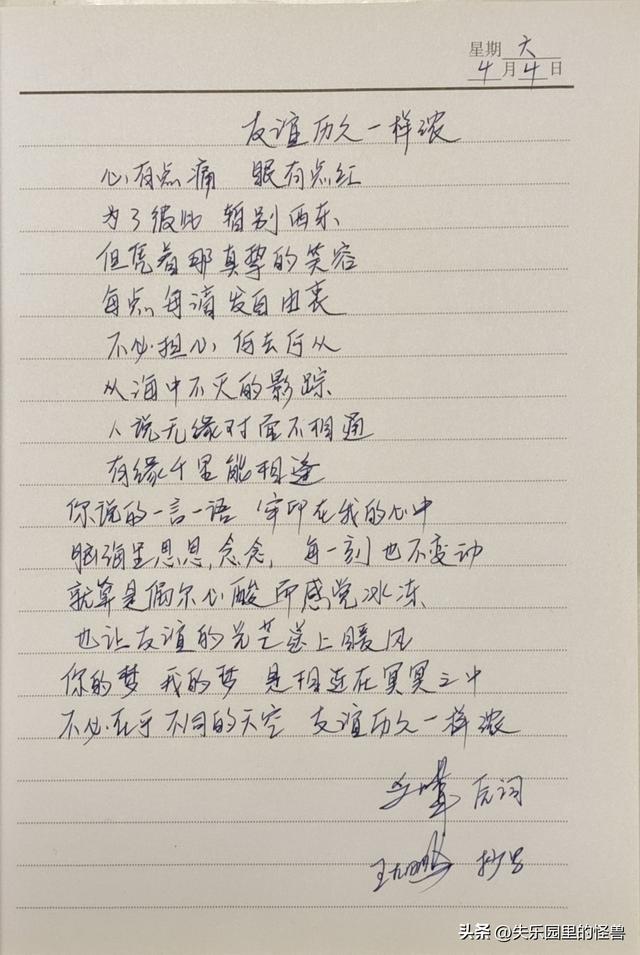 星期 六
4月4日
友谊历久一样浓
心有点痛 眼有点红
为了彼此 暂别西东
但凭着那真挚的笑容
每点每滴发自由衷
不必担心 何去何从
从海中不灭的影踪
人说无缘对面不相逢
有缘千里能相逢
你说的一言一语 牢印在我的心中
脑海里思思念念, 每一刻也不变动
就算是偶尔心酸而感觉冰冻
也让友谊的光芒送上暖风
你的梦 我的梦 是相连在冥冥之中
不必在乎不同的天空 友谊历久一样浓
原词
抄写
头条 @失乐园里的怪兽